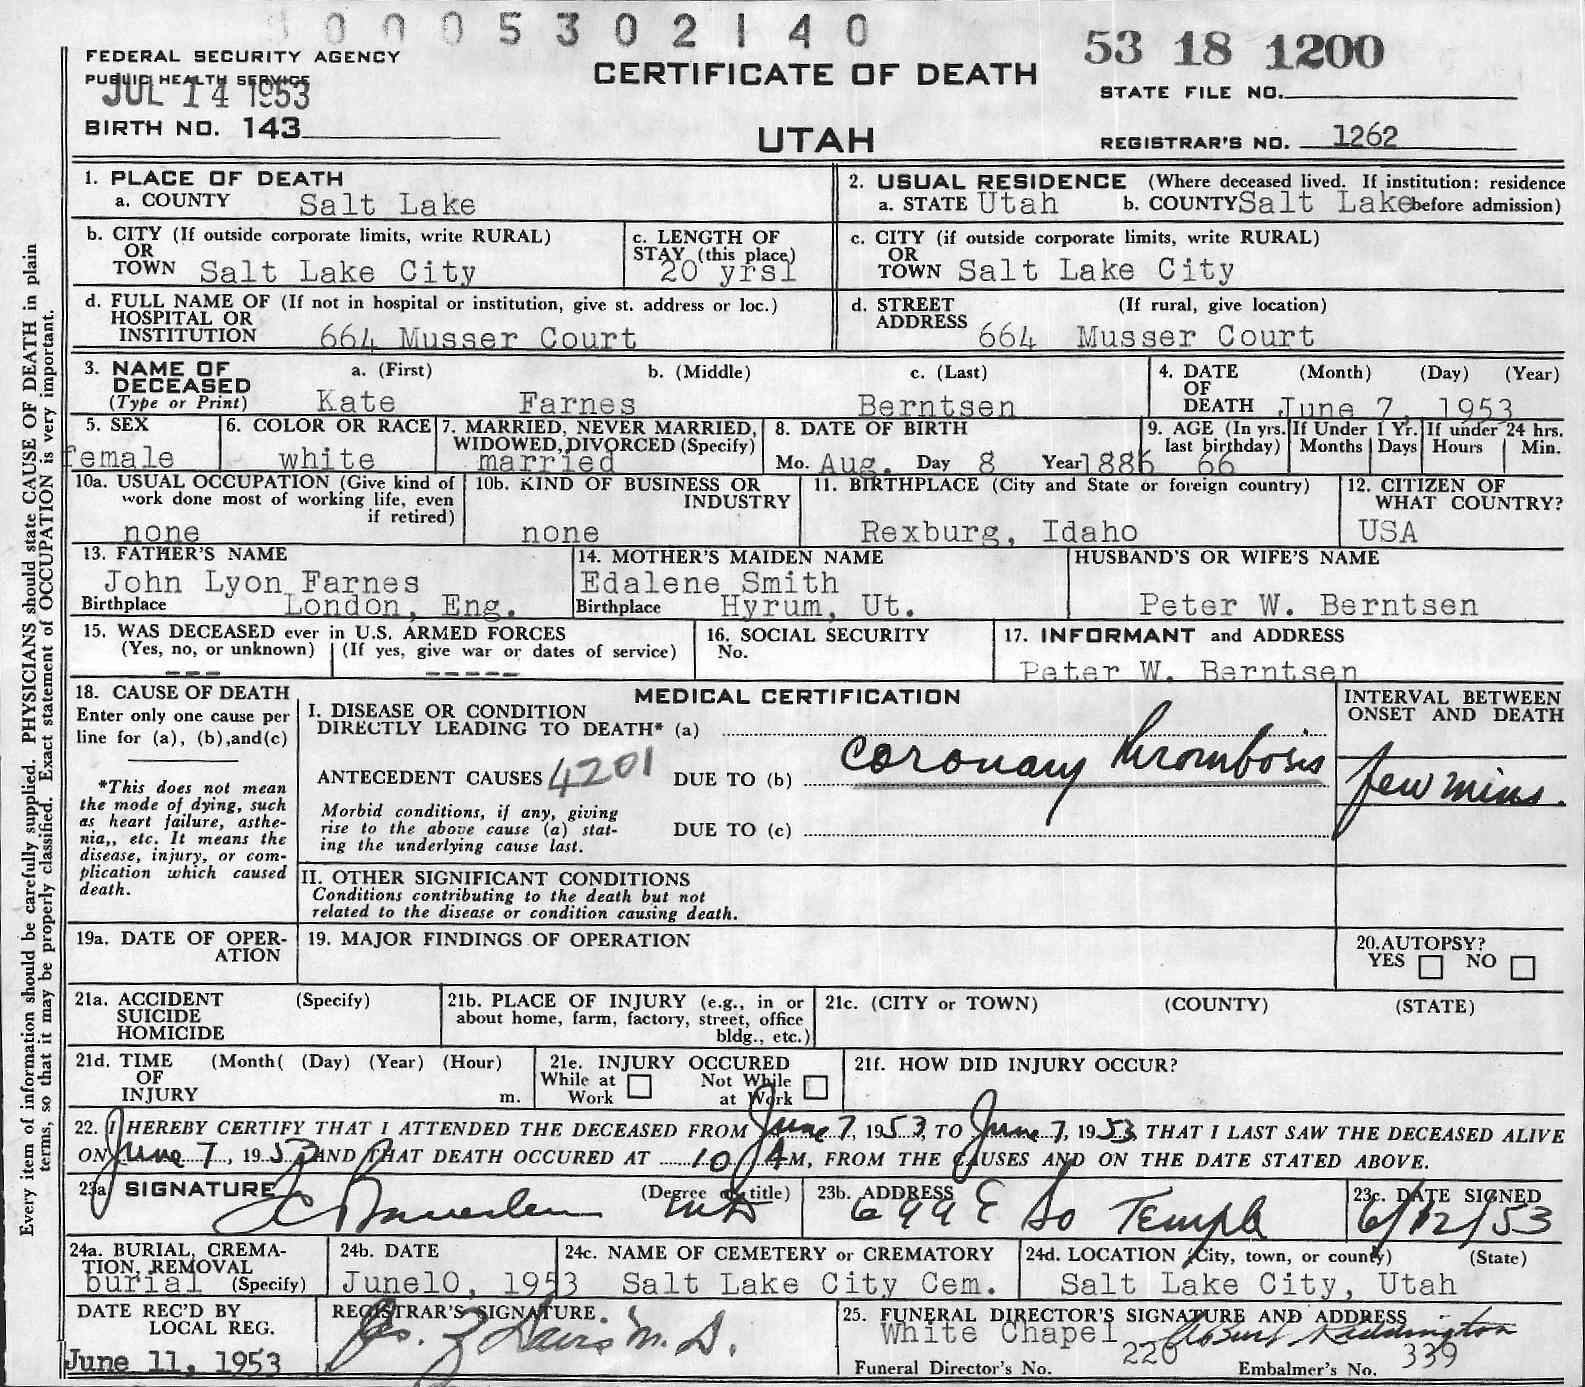 0005302140
53 18 1200
FEDERAL SECURITY AGENCY
PUBLIC HEALTH SERVICE
JUL 14 1953
CERTIFICATE OF DEATH
STATE FILE NO.
BIRTH NO. 143
UTAH
REGISTRAR'S NO. 1262
Every item of information should be carefully supplied. PHYSICIANS should state CAUSE OF DEATH in plain
terms, so that it may be properly classified. Exact statement of OCCUPATION is very important.
1. PLACE OF DEATH
a. COUNTY Salt Lake
2. USUAL RESIDENCE (Where deceased lived. If institution: residence
a. STATE Utah b. COUNTY Salt Lake before admission)
b. CITY (If outside corporate limits, write RURAL)
OR
TOWN Salt Lake City
c. LENGTH OF
STAY (this place)
20 yrsl
c. CITY (if outside corporate limits, write RURAL)
OR
TOWN Salt Lake City
d. FULL NAME OF (If not in hospital or institution, give st. address or loc.)
HOSPITAL OR
INSTITUTION 664 Musser Court
d. STREET (If rural, give location)
ADDRESS 664 Musser Court
3. NAME OF a. (First) b. (Middle) c. (Last)
DECEASED
(Type or Print) Kate Farnes Berntsen
4. DATE (Month) (Day) (Year)
OF
DEATH June 7, 1953
5. SEX
female
6. COLOR OR RACE
white
7. MARRIED, NEVER MARRIED,
WIDOWED, DIVORCED (Specify)
married
8. DATE OF BIRTH
Mo. Aug. Day 8 Year 1886
9. AGE (In yrs.
last birthday)
66
If Under 1 Yr.
Months Days
If under 24 hrs.
Hours Min.
10a. USUAL OCCUPATION (Give kind of
work done most of working life, even
if retired)
none
10b. KIND OF BUSINESS OR
INDUSTRY
none
11. BIRTHPLACE (City and State or foreign country)
Rexburg, Idaho
12. CITIZEN OF
WHAT COUNTRY?
USA
13. FATHER'S NAME
John Lyon Farnes
Birthplace London, Eng.
14. MOTHER'S MAIDEN NAME
Edalene Smith
Birthplace Hyrum, Ut.
HUSBAND'S OR WIFE'S NAME
Peter W. Berntsen
15. WAS DECEASED ever in U.S. ARMED FORCES
(Yes, no, or unknown) (If yes, give war or dates of service)
--- -----
16. SOCIAL SECURITY
No.
17. INFORMANT and ADDRESS
Peter W. Berntsen
18. CAUSE OF DEATH
Enter only one cause per
line for (a), (b),and(c)
*This does not mean
the mode of dying, such
as heart failure, asthe-
nia,, etc. It means the
disease, injury, or com-
plication which caused
death.
MEDICAL CERTIFICATION
I. DISEASE OR CONDITION
DIRECTLY LEADING TO DEATH* (a)
coronary thrombosis
ANTECEDENT CAUSES 4201 DUE TO (b)
Morbid conditions, if any, giving
rise to the above cause (a) stat-
ing the underlying cause last.
DUE TO (c)
INTERVAL BETWEEN
ONSET AND DEATH
few mins.
II. OTHER SIGNIFICANT CONDITIONS
Conditions contributing to the death but not
related to the disease or condition causing death.
19a. DATE OF OPER-
ATION
19. MAJOR FINDINGS OF OPERATION
20. AUTOPSY?
YES NO
21a. ACCIDENT (Specify)
SUICIDE
HOMICIDE
21b. PLACE OF INJURY (e.g., in or
about home, farm, factory, street, office
bldg., etc.)
21c. (CITY or TOWN) (COUNTY) (STATE)
21d. TIME (Month( (Day) (Year) (Hour)
OF
INJURY m.
21e. INJURY OCCURED
While at Work Not While at Work
21f. HOW DID INJURY OCCUR?
22. I HEREBY CERTIFY THAT I ATTENDED THE DECEASED FROM June 7, 1953, TO June 7, 1953, THAT I LAST SAW THE DECEASED ALIVE
ON June 7, 1953 AND THAT DEATH OCCURED AT 10 AM, FROM THE CAUSES AND ON THE DATE STATED ABOVE.
23a SIGNATURE (Degree or title) MD
23b. ADDRESS
699 E So Temple
23c. DATE SIGNED
6/12/53
24a. BURIAL, CREMA-
TION, REMOVAL
burial (Specify)
24b. DATE
June10, 1953
24c. NAME OF CEMETERY or CREMATORY
Salt Lake City Cem.
24d. LOCATION (City, town, or county) (State)
Salt Lake City, Utah
DATE REC'D BY
LOCAL REG.
June 11, 1953
REGISTRAR'S SIGNATURE.
Davis M.D.
25. FUNERAL DIRECTOR'S SIGNATURE AND ADDRESS
White Chapel
Funeral Director's No. 220 Embalmer's No. 339